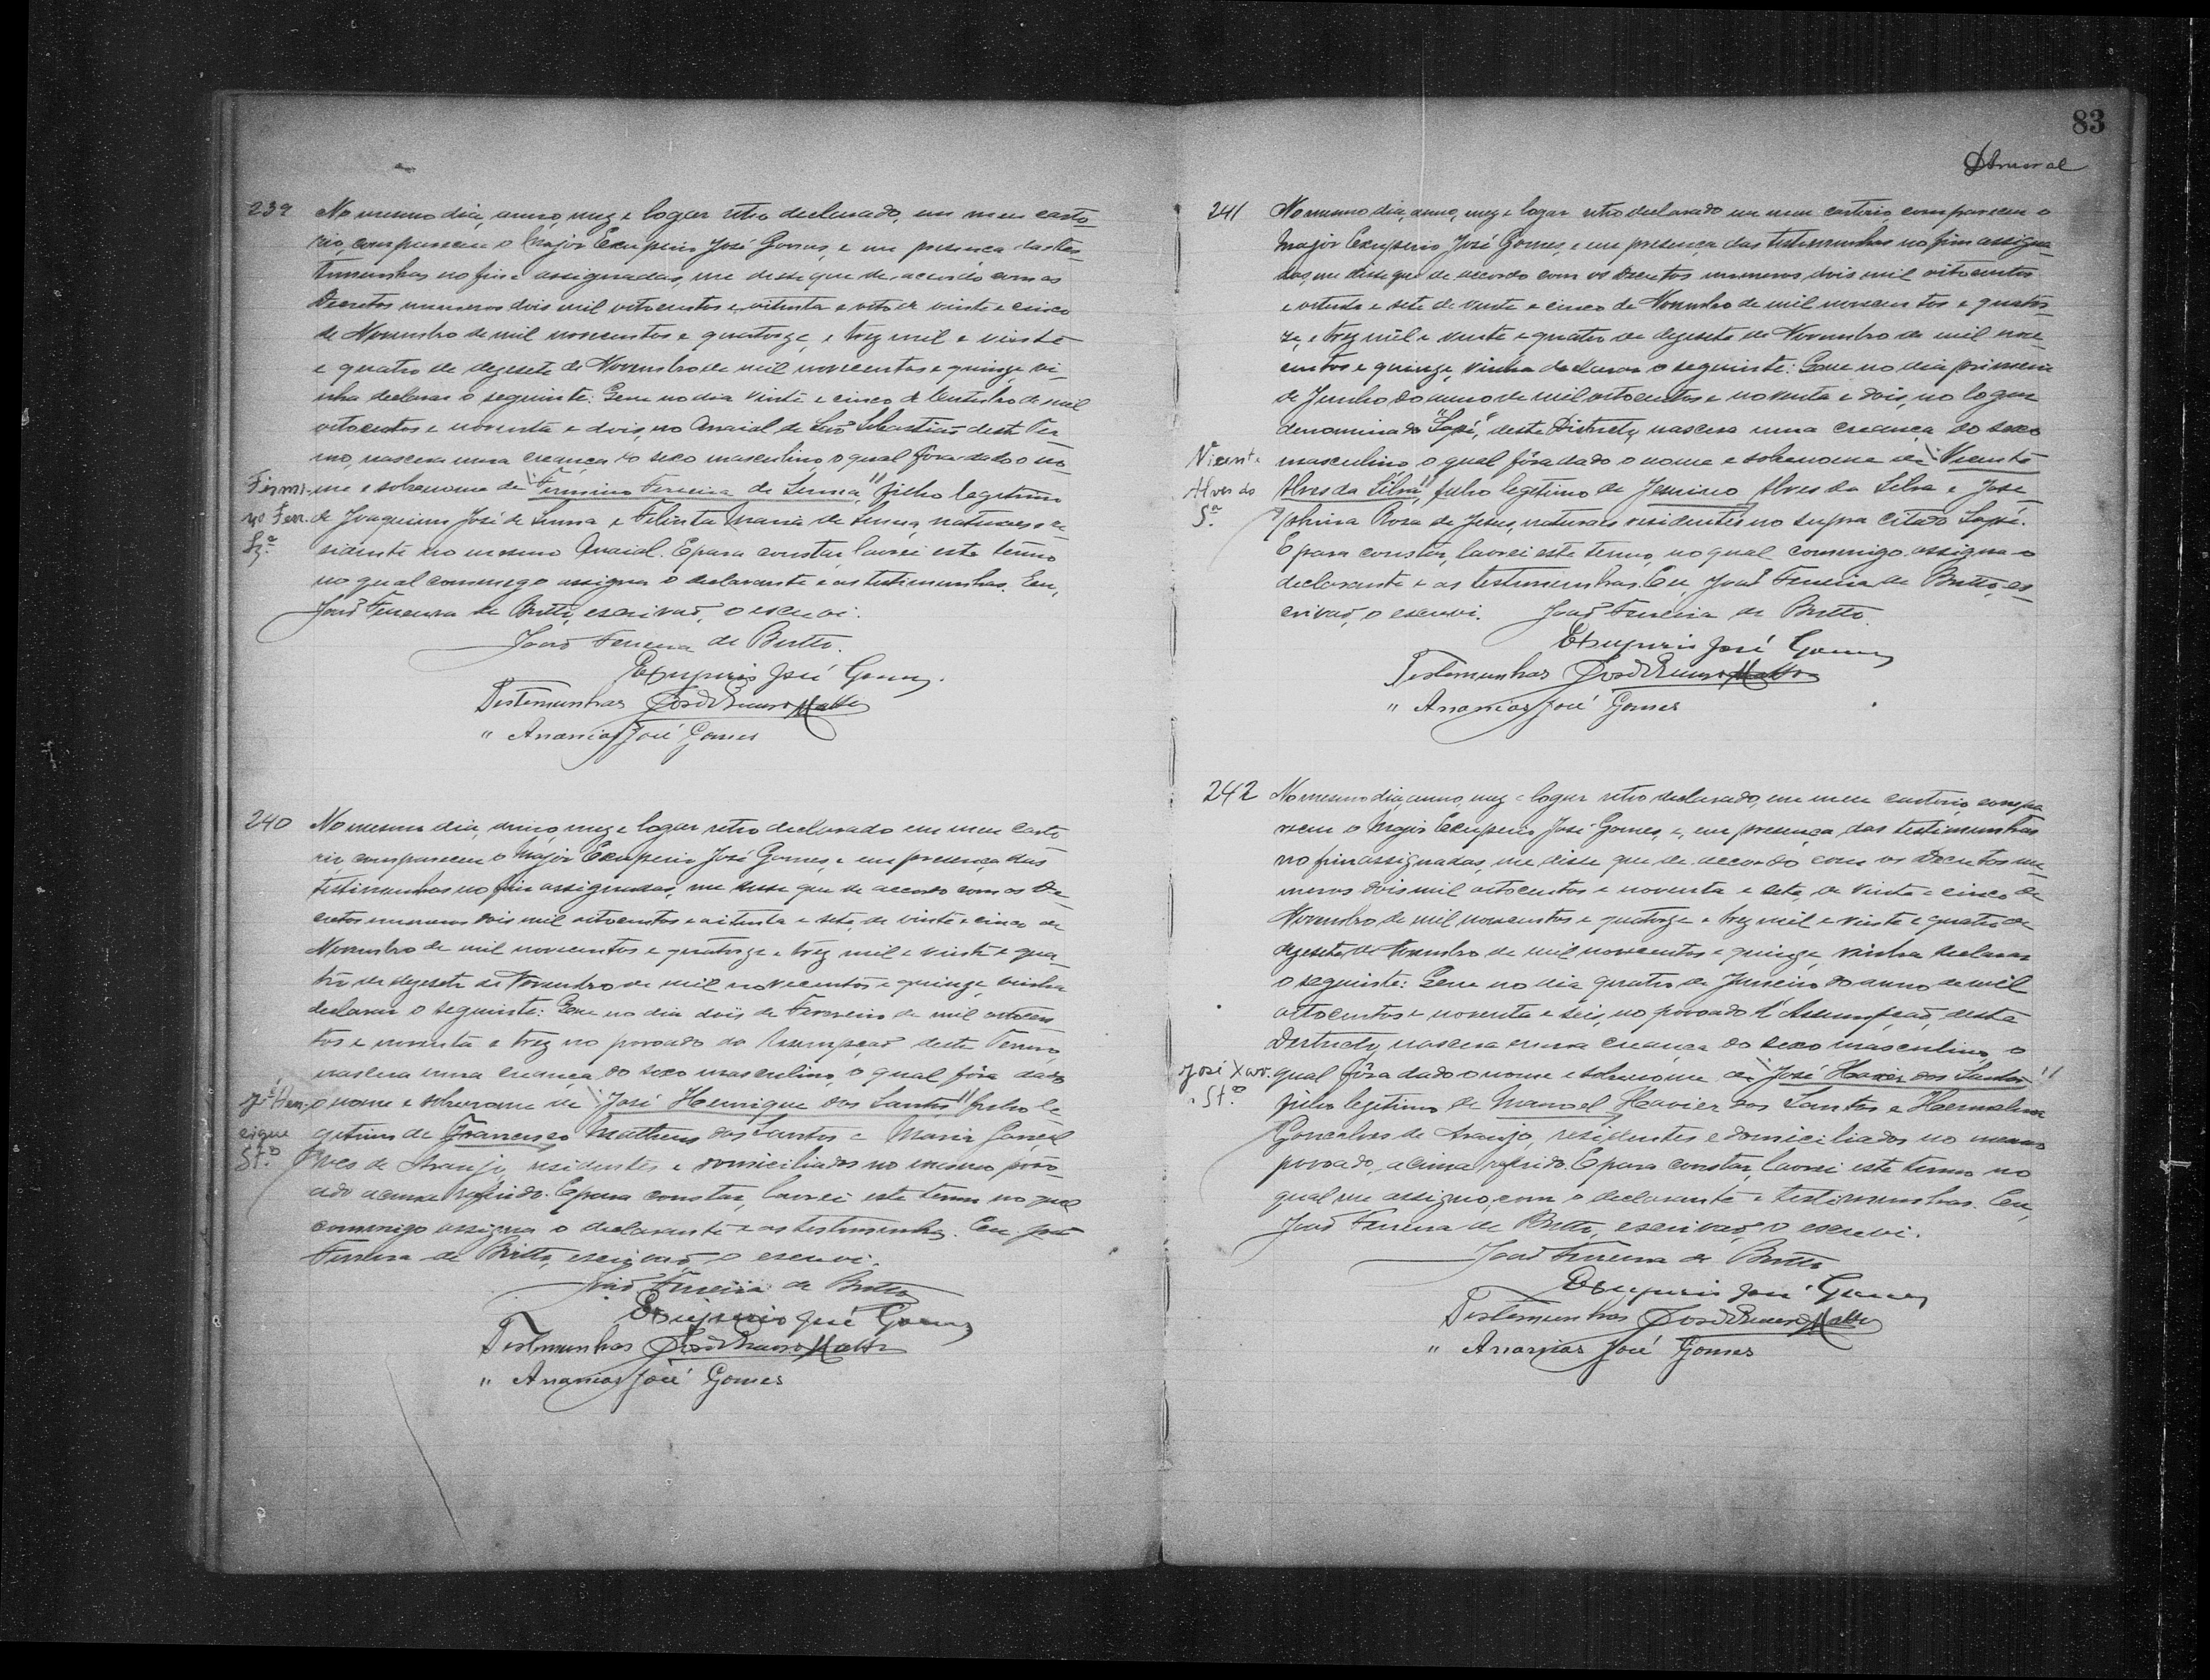 239 No mesmo dia, anno, mez e logar retro declarado, em meu carto-
rio, compareceu o Major Exuperio José Gomes, e em presença das tes-
timunhas no fim assignadas, me disse que de accordo com os
Decretos numeros dois mil oitocentos e oitenta e oito de vinte e cinco
de Novembro de mil novecentos e quatorze, e trez mil e vinte
e quatro de dezesete de Novembro de mil novecentos e quinze vi-
nha declarar o seguinte: Que no dia vinte e cinco de de mil
oitocentos e noventa e dois, no Arraial de São Sebastião deste Ter-
mo, nascera uma creança do sexo masculino, o qual fôra dado o no-
Firmi- me e sobrenome de "Firmino Ferreira de Senna," filho legitimo
no Ferr. de Joaquim José de Senna e Maria de Senna, naturaes e re-
Sª sidente no mesmo Arraial. E para constar, lavrei este termo
no qual commigo assigna o declarante e as testimunhas. Eu,
João Ferreira de Britto, escrivão, o escrevi.
João Ferreira de Britto.
Exuperio José Gomes.
Testemunhas José Mattos
" Ananias José Gomes
240 No mesmo dia, anno, mez e logar retro declarado em meu carto-
rio compareceu o Major Exuperio José Gomes, e em presença das
testimunhas no fim assignadas, me disse que de accordo com os De-
cretos numeros dois mil oitocentos e oitenta e sete, de vinte e cinco de
Novembro de mil novecentos e quatorze e trez mil e vinte e qua-
tro de dezesete de Novembro de mil novecentos e quinze, vinha
declarar o seguinte: Que no dia dois de Fevereiro de mil oitocen-
tos e noventa e trez no povoado da Assumpção deste Termo
nascera uma creança do sexo masculino, o qual fôra dado
Jé Hen- o nome e sobrenome de "José Henrique dos Santos" filho le-
rique gitimo de Francisco Matheus dos Santos e Maria Gonçal-
Stº ves de Araujo, residentes e domiciliados no mesmo povo-
ado acima referido. E para constar, lavrei este termo no qual
commigo assigna o declarante e as testimunhas. Eu João
Ferreira de Britto, escrivão, o escrevi.
João Ferreira de Britto
Exuperio José Gomes
Testemunhas José Mattos
" Ananias José Gomes
83
Amaral
241 No mesmo dia, anno, mez e logar retro declarado em meu cartorio, compareceu o
Major Exuperio José Gomes, e em presença das testimunhas no fim assigna-
das, me disse que de accordo com os Decretos numeros dois mil oitocentos
e oitenta e sete de vinte e cinco de Novembro de mil novecentos e quator-
ze, e trez mil e vinte e quatro de dezesete de Novembro de mil nove-
centos e quinze, vinha declarar o seguinte: Que no dia primeiro
de Junho do anno de mil oitocentos e noventa e dois, no logar
denominado "Sapé," deste Districto, nascera uma creança do sexo
Vicente masculino, o qual fôra dado o nome e sobrenome de "Vicente
Alves da Alves da Silva," filho legitimo de Jesuino Alves da Silva e Jose-
Sª phina Rosa de Jesus, naturaes residentes no supra citado Sapé.
E para constar, lavrei este termo, no qual commigo assigna o
declarante e as testimunhas. Eu, João Ferreira de Britto, es-
crivão, o escrevi. João Ferreira de Britto.
Exuperio José Gomes
Testemunhas José Mattos
" Ananias José Gomes
242 No mesmo dia, anno, mez e logar retro declarado, em meu cartorio, compa-
receu o Major Exuperio José Gomes, e, em presença das testimunhas
no fim assignadas, me disse que de accordo com os Decretos nu-
meros dois mil oitocentos e noventa e sete, de vinte e cinco de
Novembro de mil novecentos e quatorze e trez mil e vinte e quatro de
dezesete de Novembro de mil novecentos e quinze, vinha declarar
o seguinte: Que no dia quatro de Janeiro do anno de mil
oitocentos e noventa e seis, no povoado d'Assumpção, deste
Districto, nascera uma creança do sexo masculino, o
José Xav. qual fôra dado o nome e sobrenome de "José Xavier dos Santos"
Stº filho legitimo de Manoel Xavier dos Santos e
Goncalves de Araujo, residentes e domiciliados no mesmo
povoado, acima referido. E para constar, lavrei este termo no
qual me assigno, com o declarante e testimunhas. Eu,
João Ferreira de Britto, escrivão, o escrevi.
João Ferreira de Britto
Exuperio José Gomes
Testemunhas José Mattos
" Ananias José Gomes